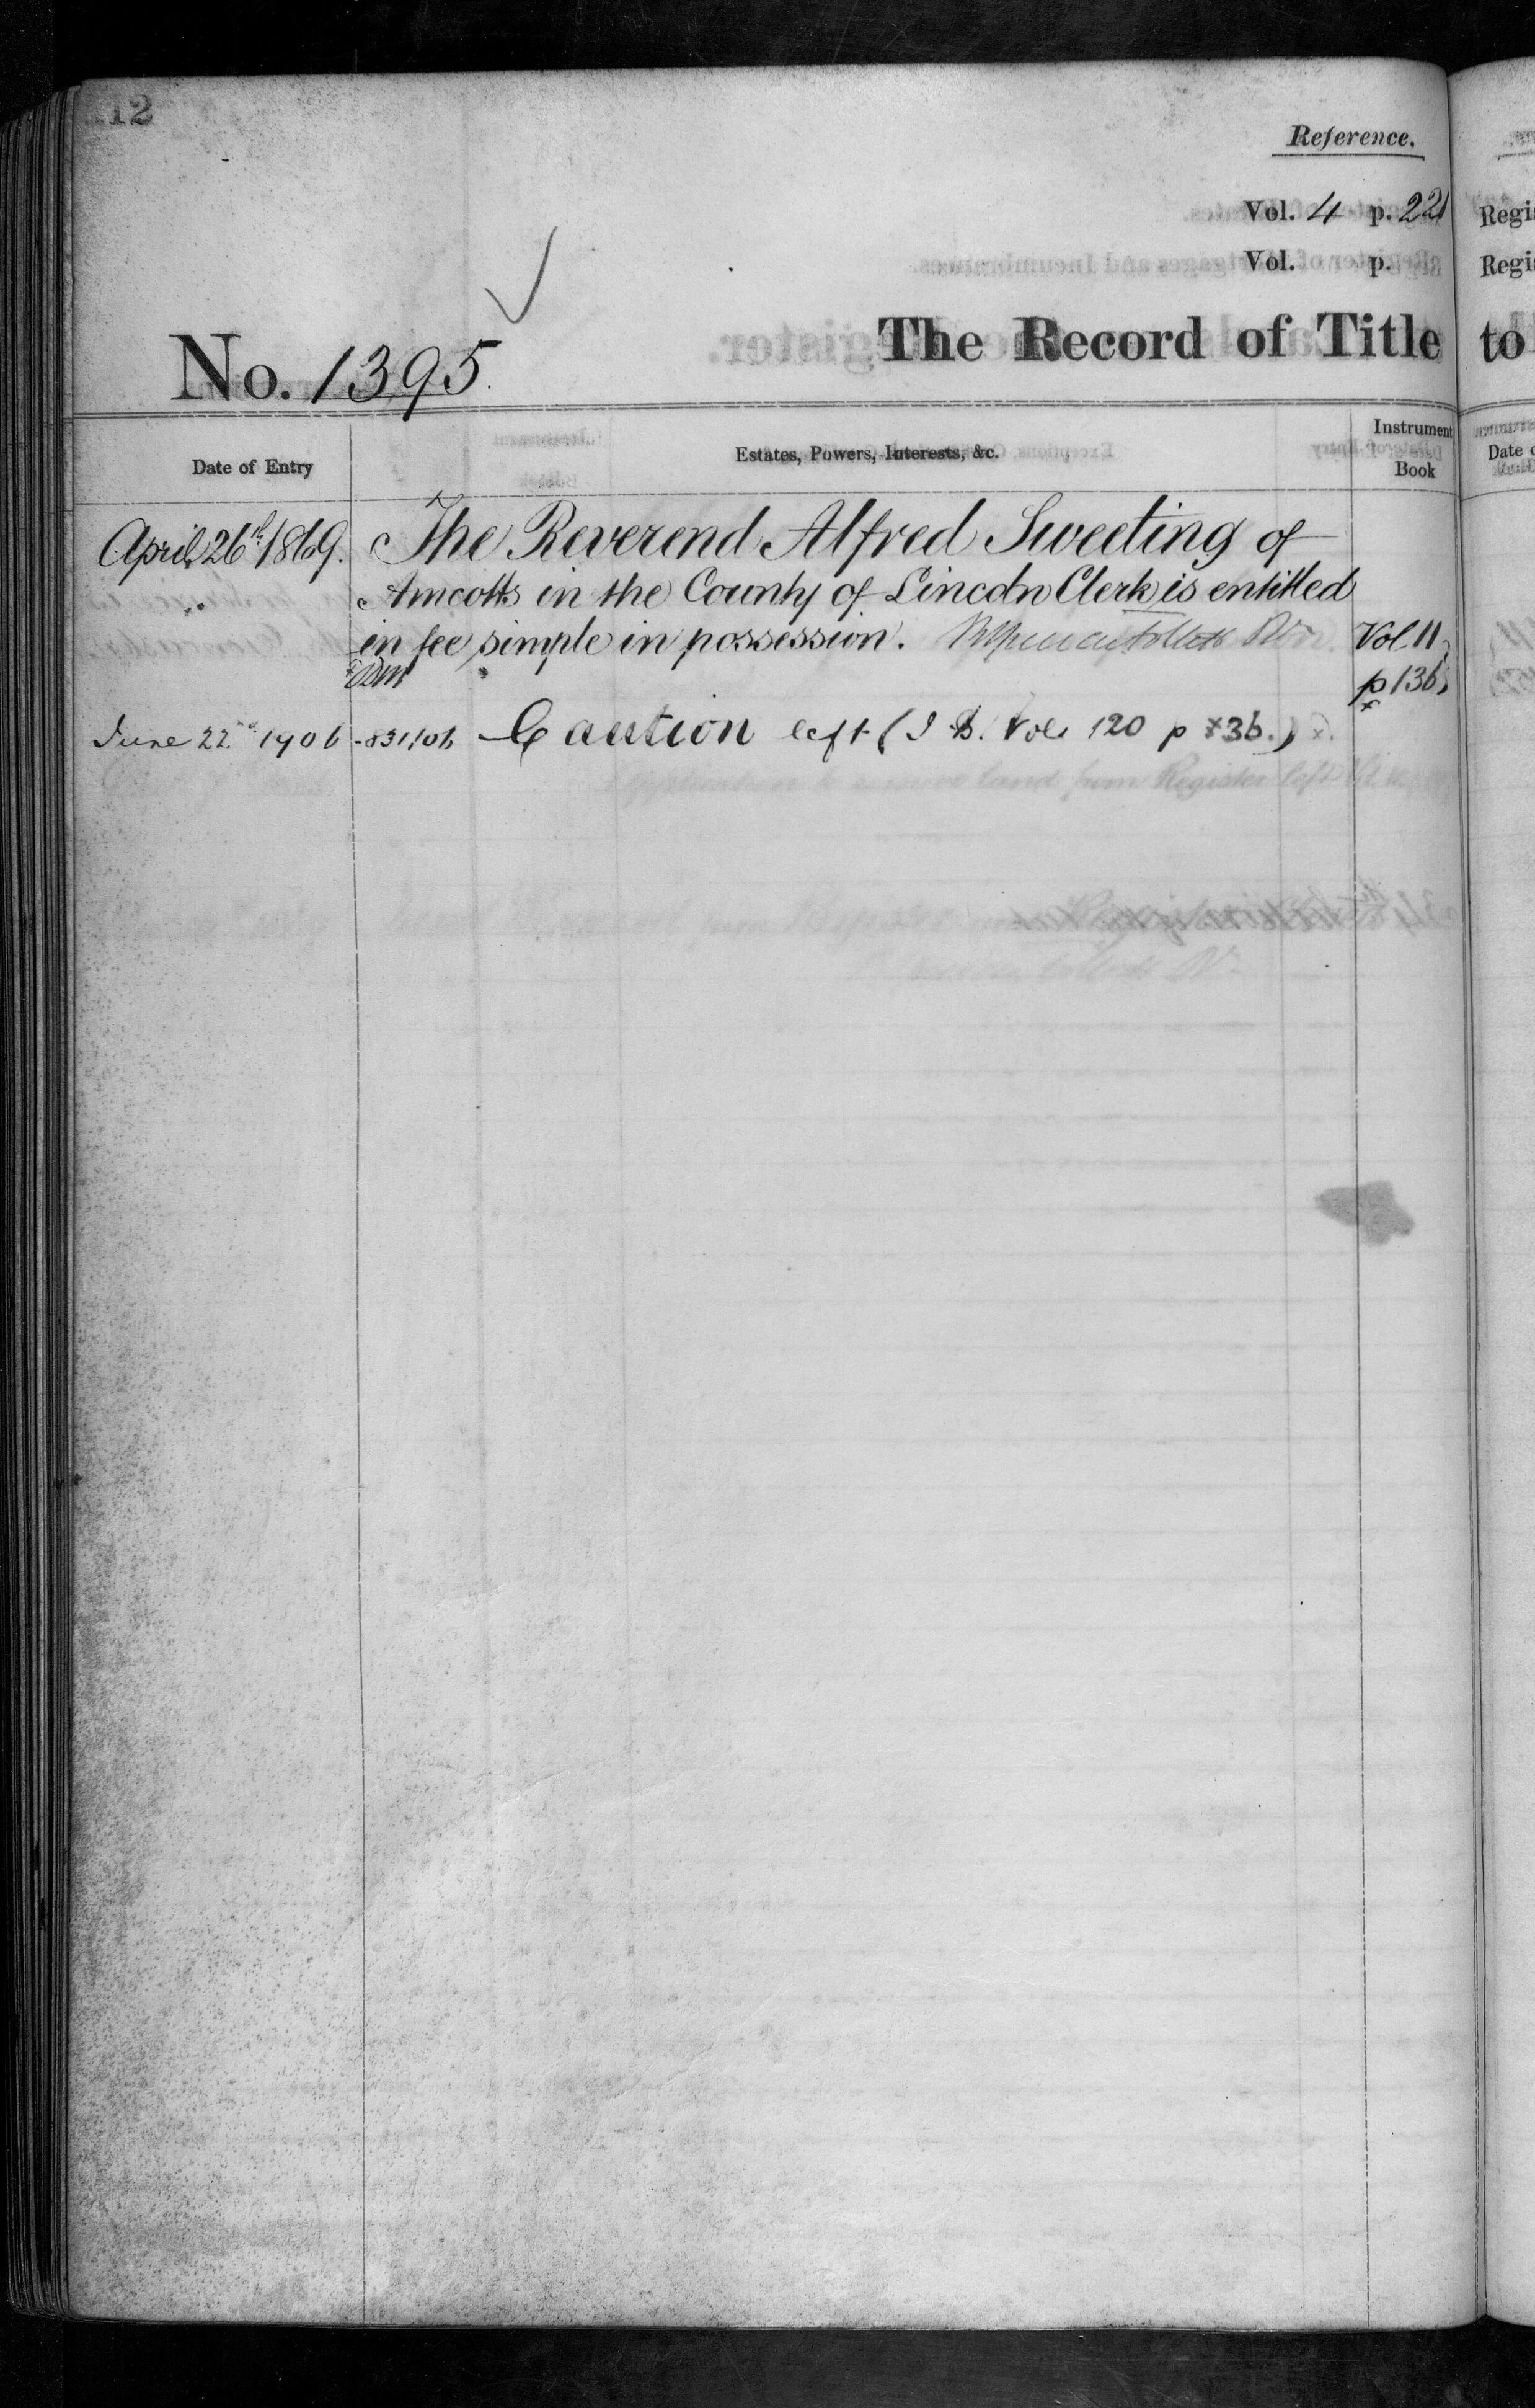 12
Reference.
Vol. 4 p. 221
Vol. p.
No. 1395.
The Record of Title to
Date of Entry
Estates, Powers, Interests, &c.
Instrument
Book
April 26th 1869. The Reverend Alfred Sweeting of
Amcotts in the County of Lincoln Clerk is entitled
in fee simple in possession. Vol. 11,
p 136,
June 22nd 1906 Caution left (I B. Vol. 120 p 36.)
Regi
Regi
Date